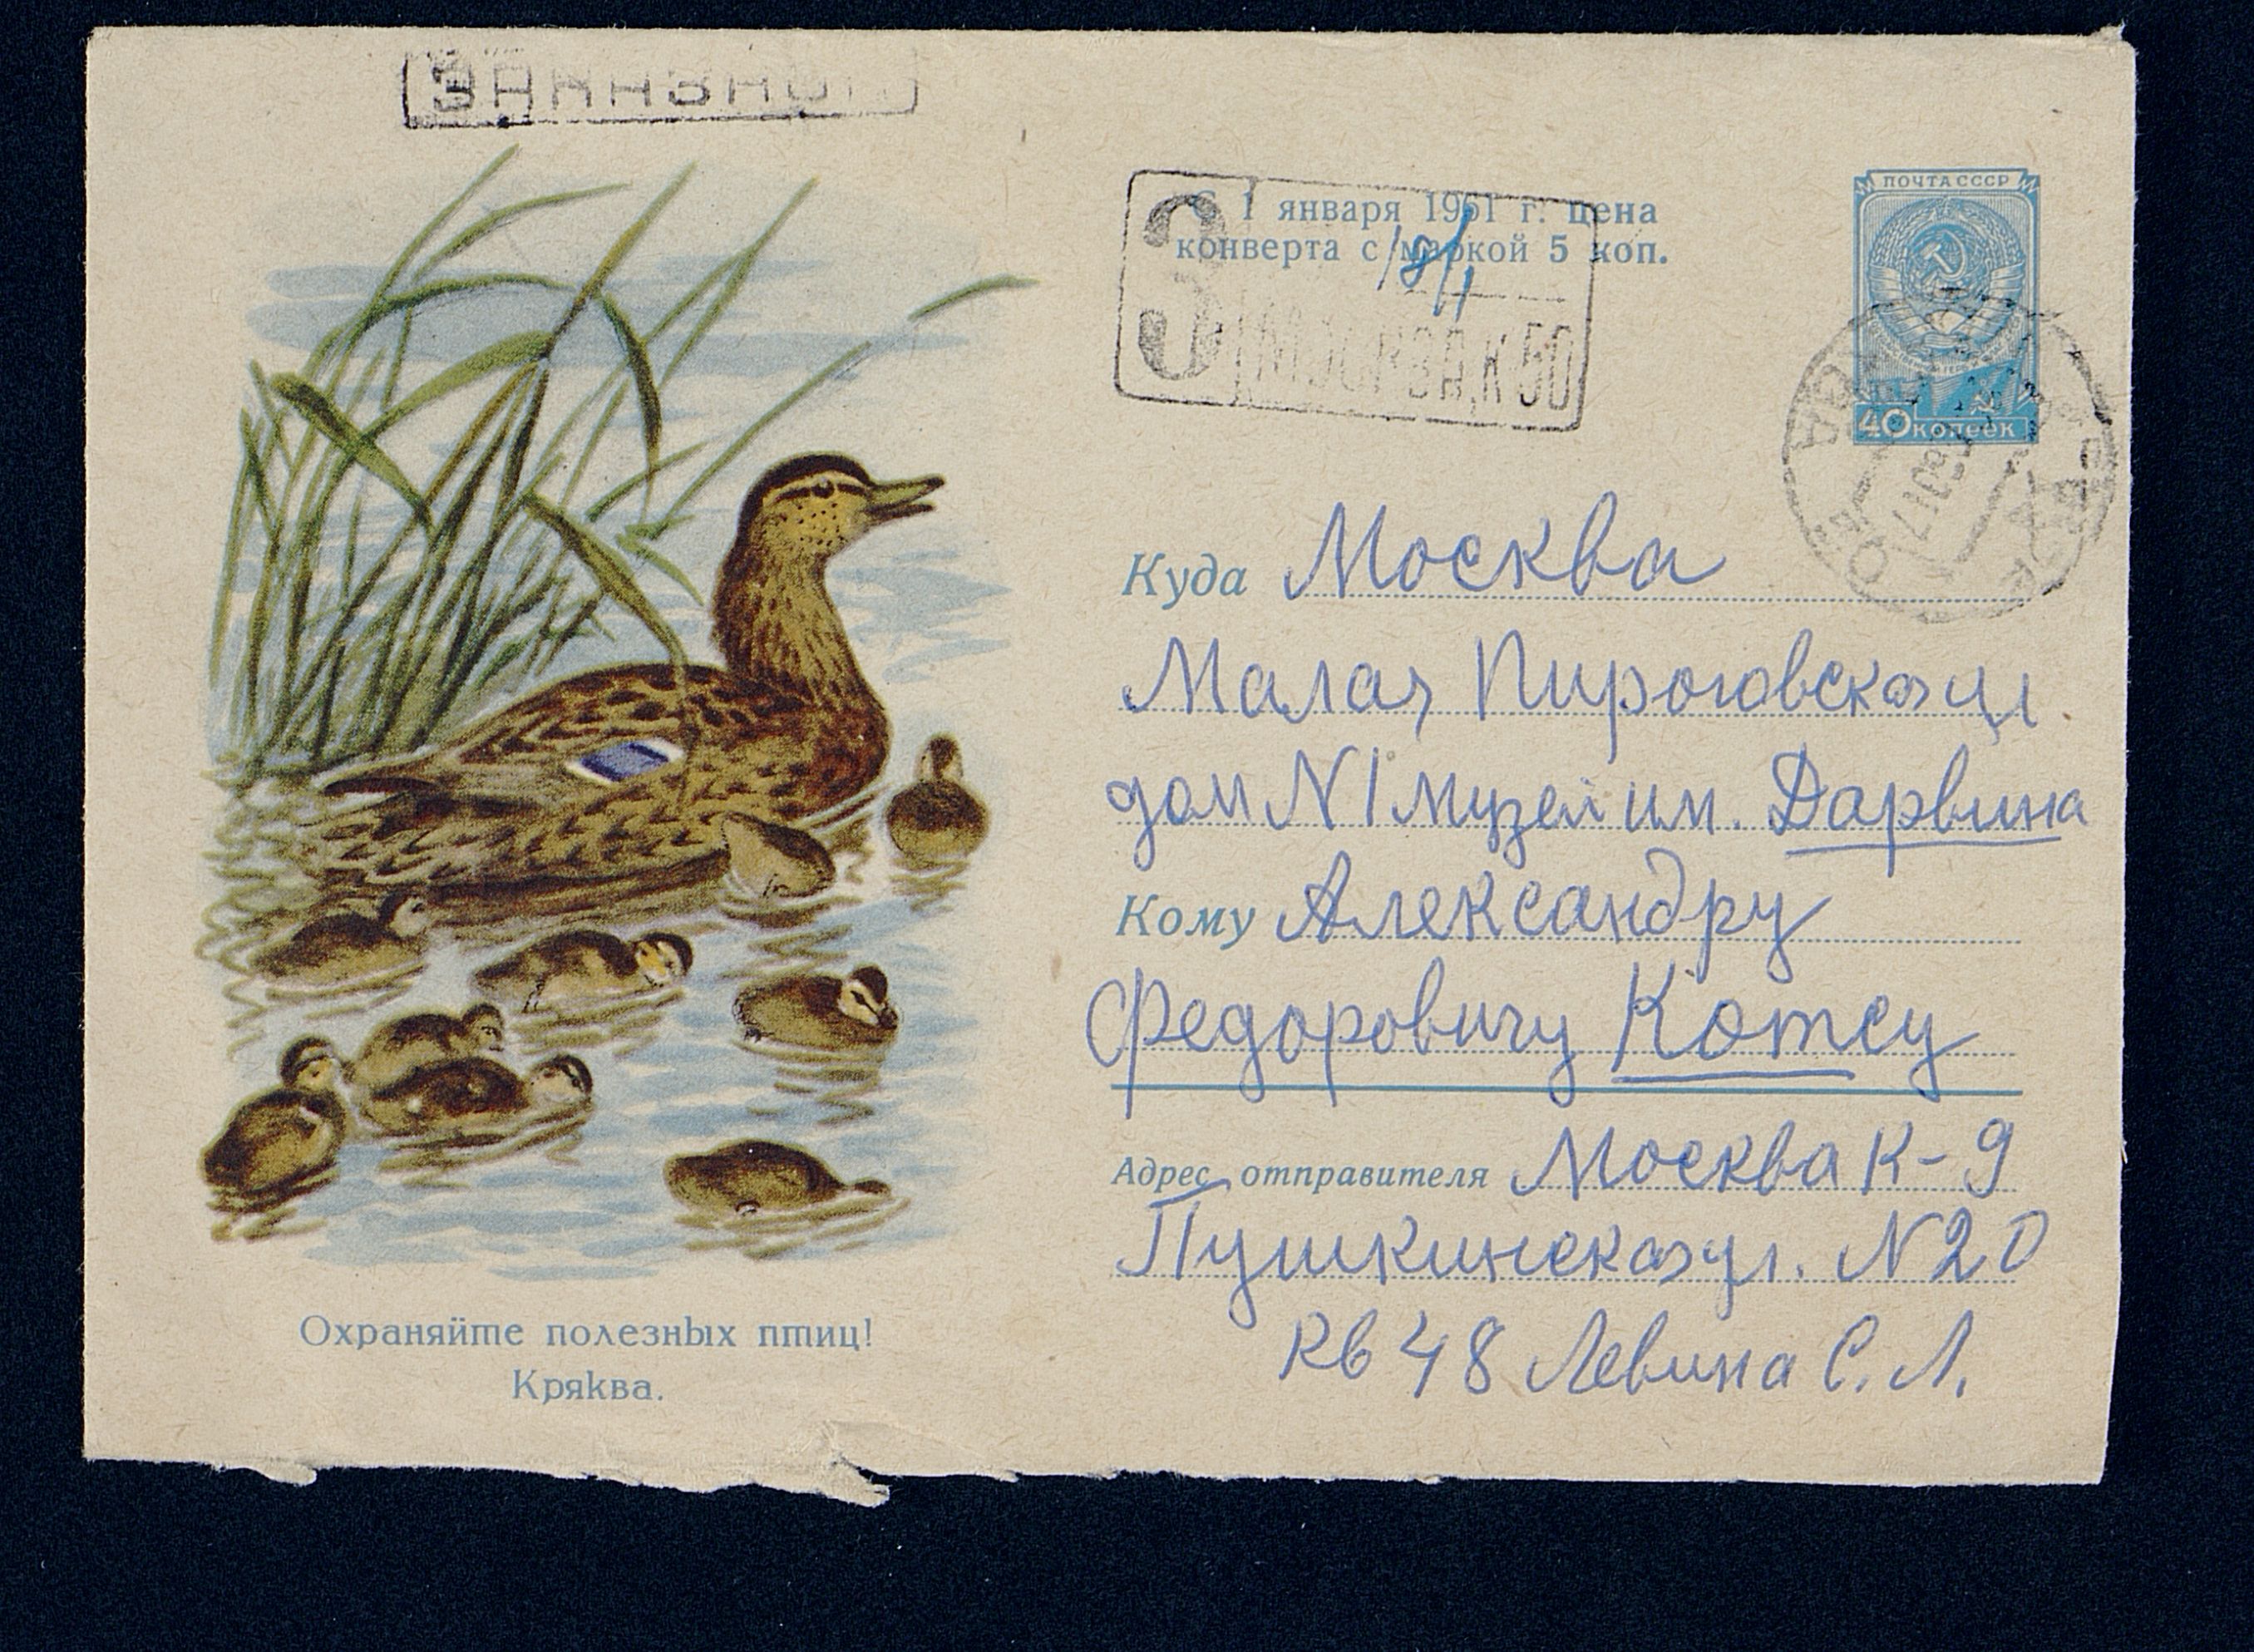 ЗАКАЗНОЕ
С 1 января 1961 г. цена
конверта с маркой 5 коп.
З
МОСКВА, К 50
ПОЧТА СССР
40 копеек
Куда Москва
Малая Пироговская ул
дом N 1 Музей им. Дарвина
Кому Александру
Федоровичу Котсу
Адрес отправителя Москва К-9
Пушкинская ул. N 20
кв 48 Левина С. Л.
Охраняйте полезных птиц!
Кряква.